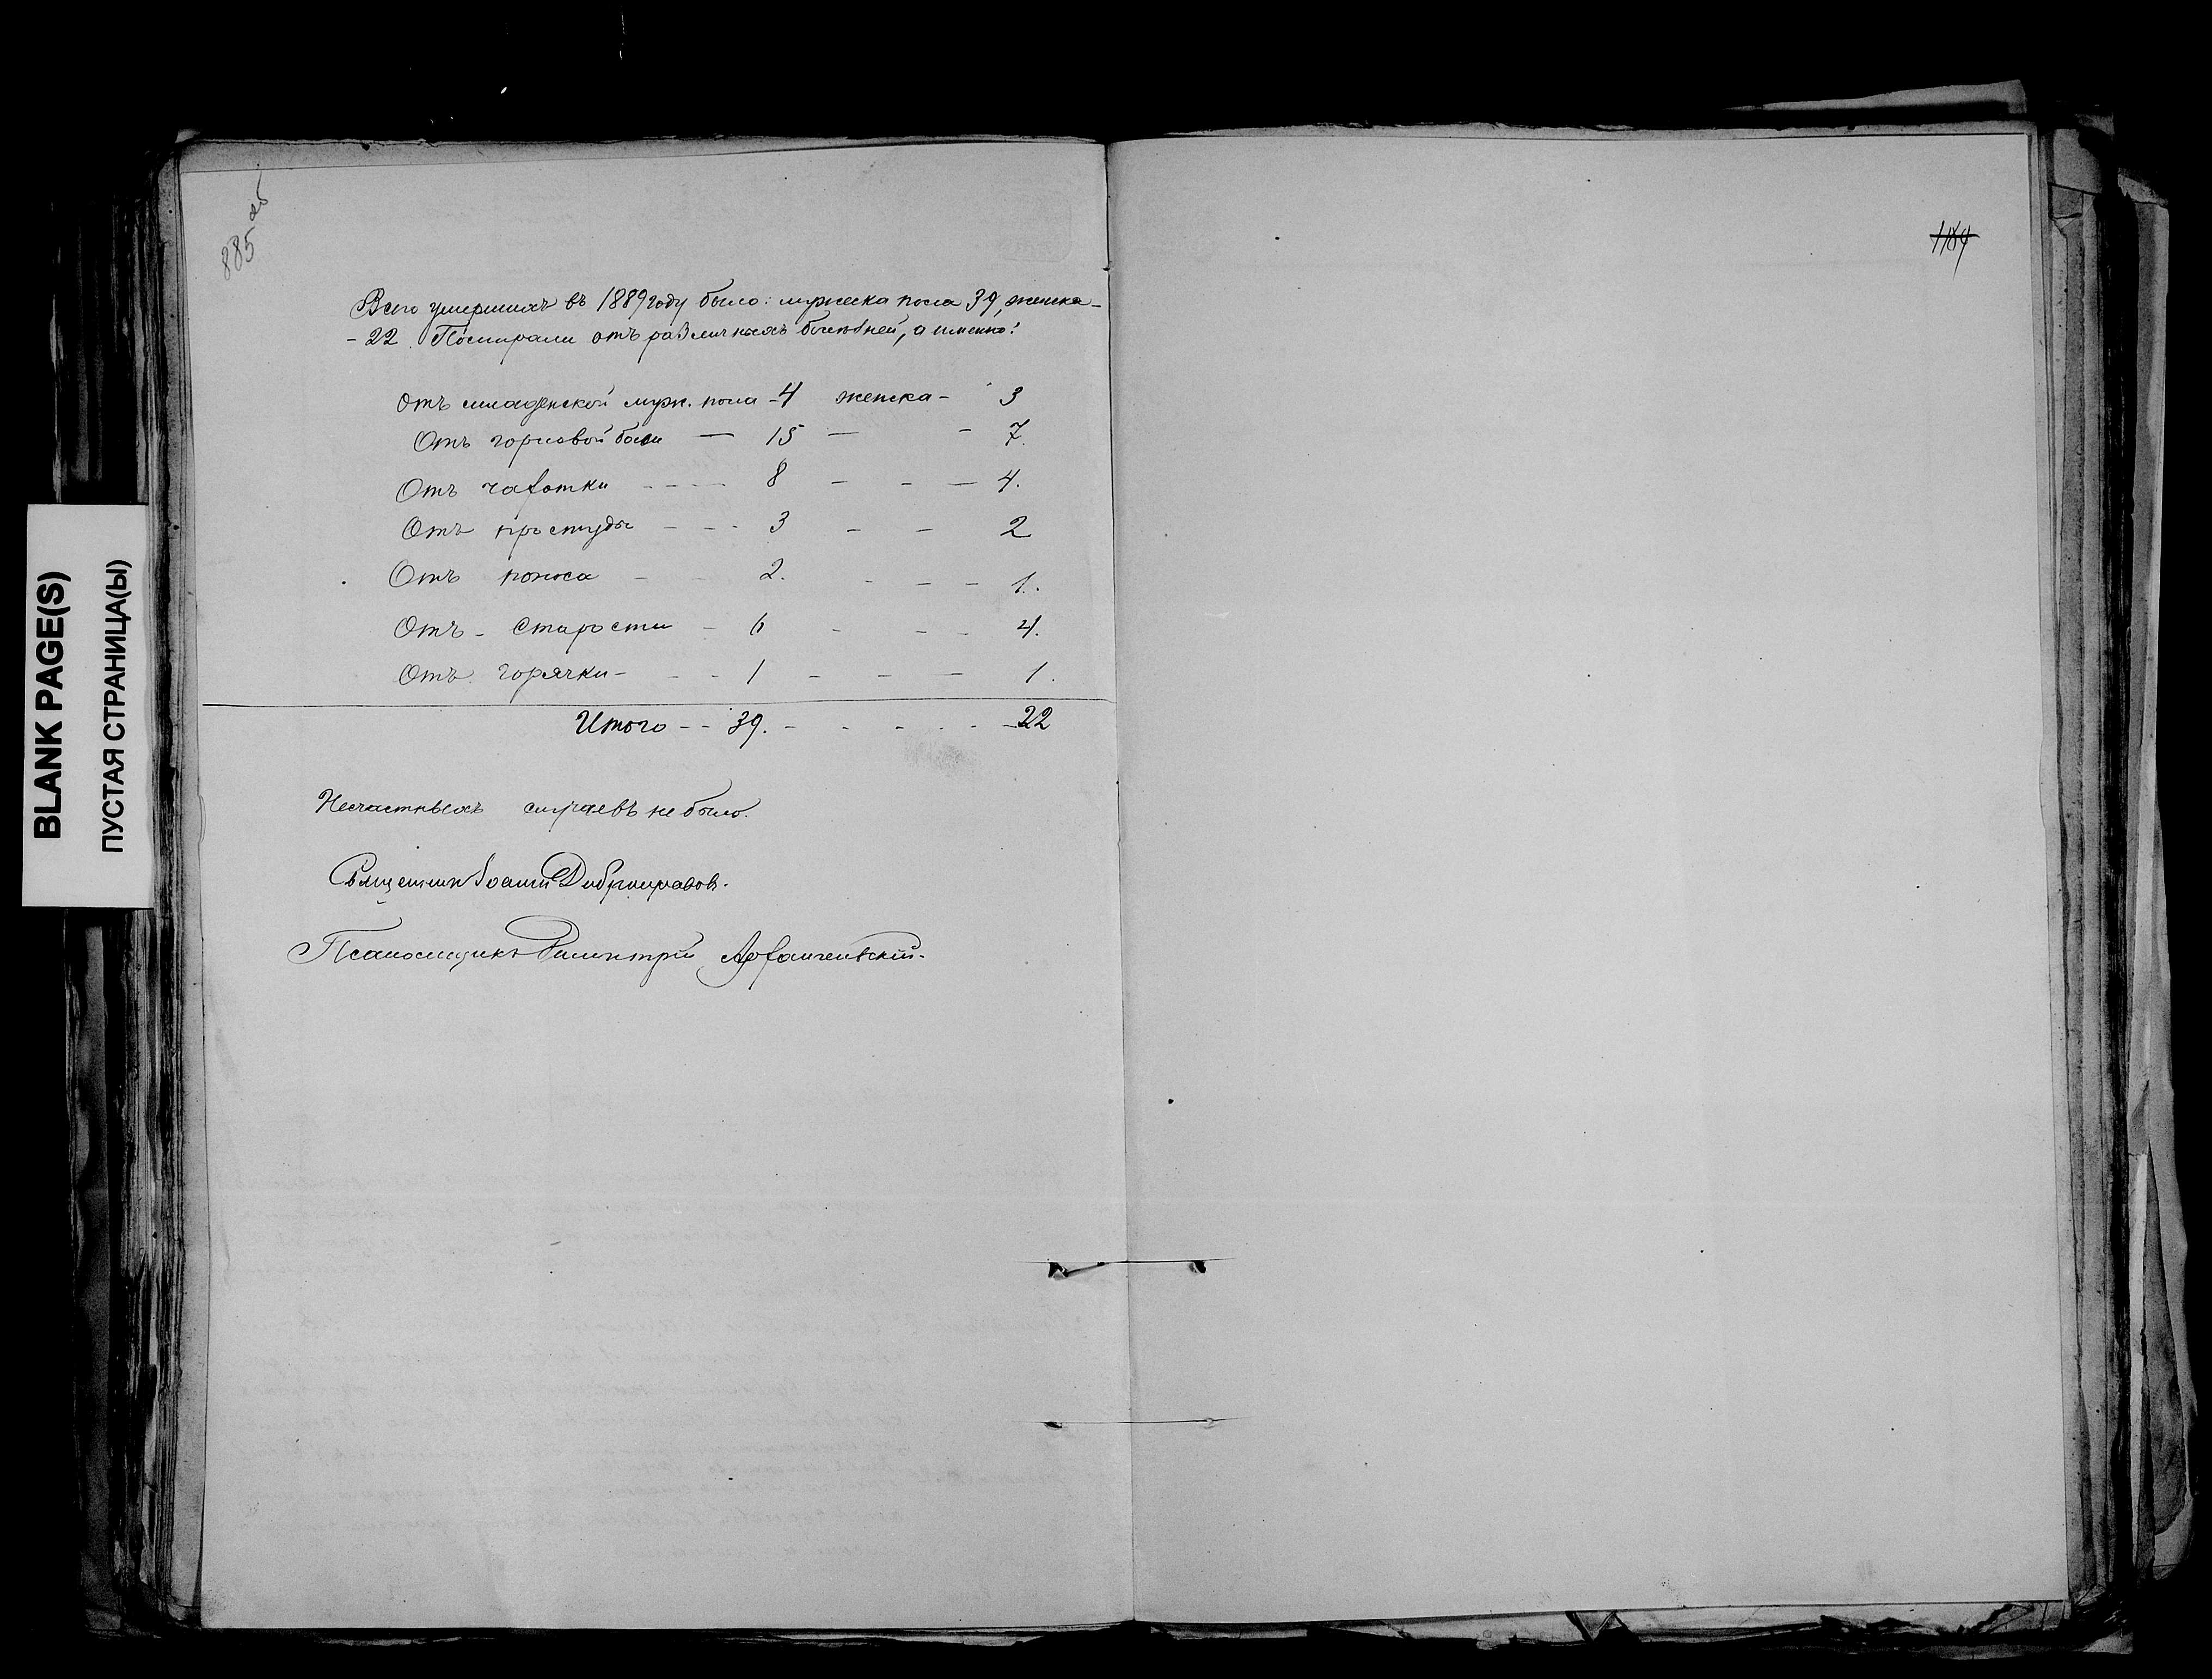 885 об
Всего умершихъ въ 1889 году было: мужеска пола 39, женска -
- 22. Помирали отъ различныхъ болезней, а именно:
Отъ младенской муж. пола - 4 женска - 3
Отъ горловой боли — 15 — - 7.
Отъ чахотки - - - - 8 - - — 4.
Отъ простуды - - - 3 - - 2
Отъ поноса - - 2. - - - 1.
Отъ - старости - 6 - - - 4.
Отъ горячки - - - 1 - - — 1.
Итого - - 39. - - - - - 22
Несчастныхъ случаевъ не было.
Священник Іоаннъ Добронравов.
Псаломщикъ Димитрій Архангельский.
1184
BLANK PAGE(S)
ПУСТАЯ СТРАНИЦА(Ы)